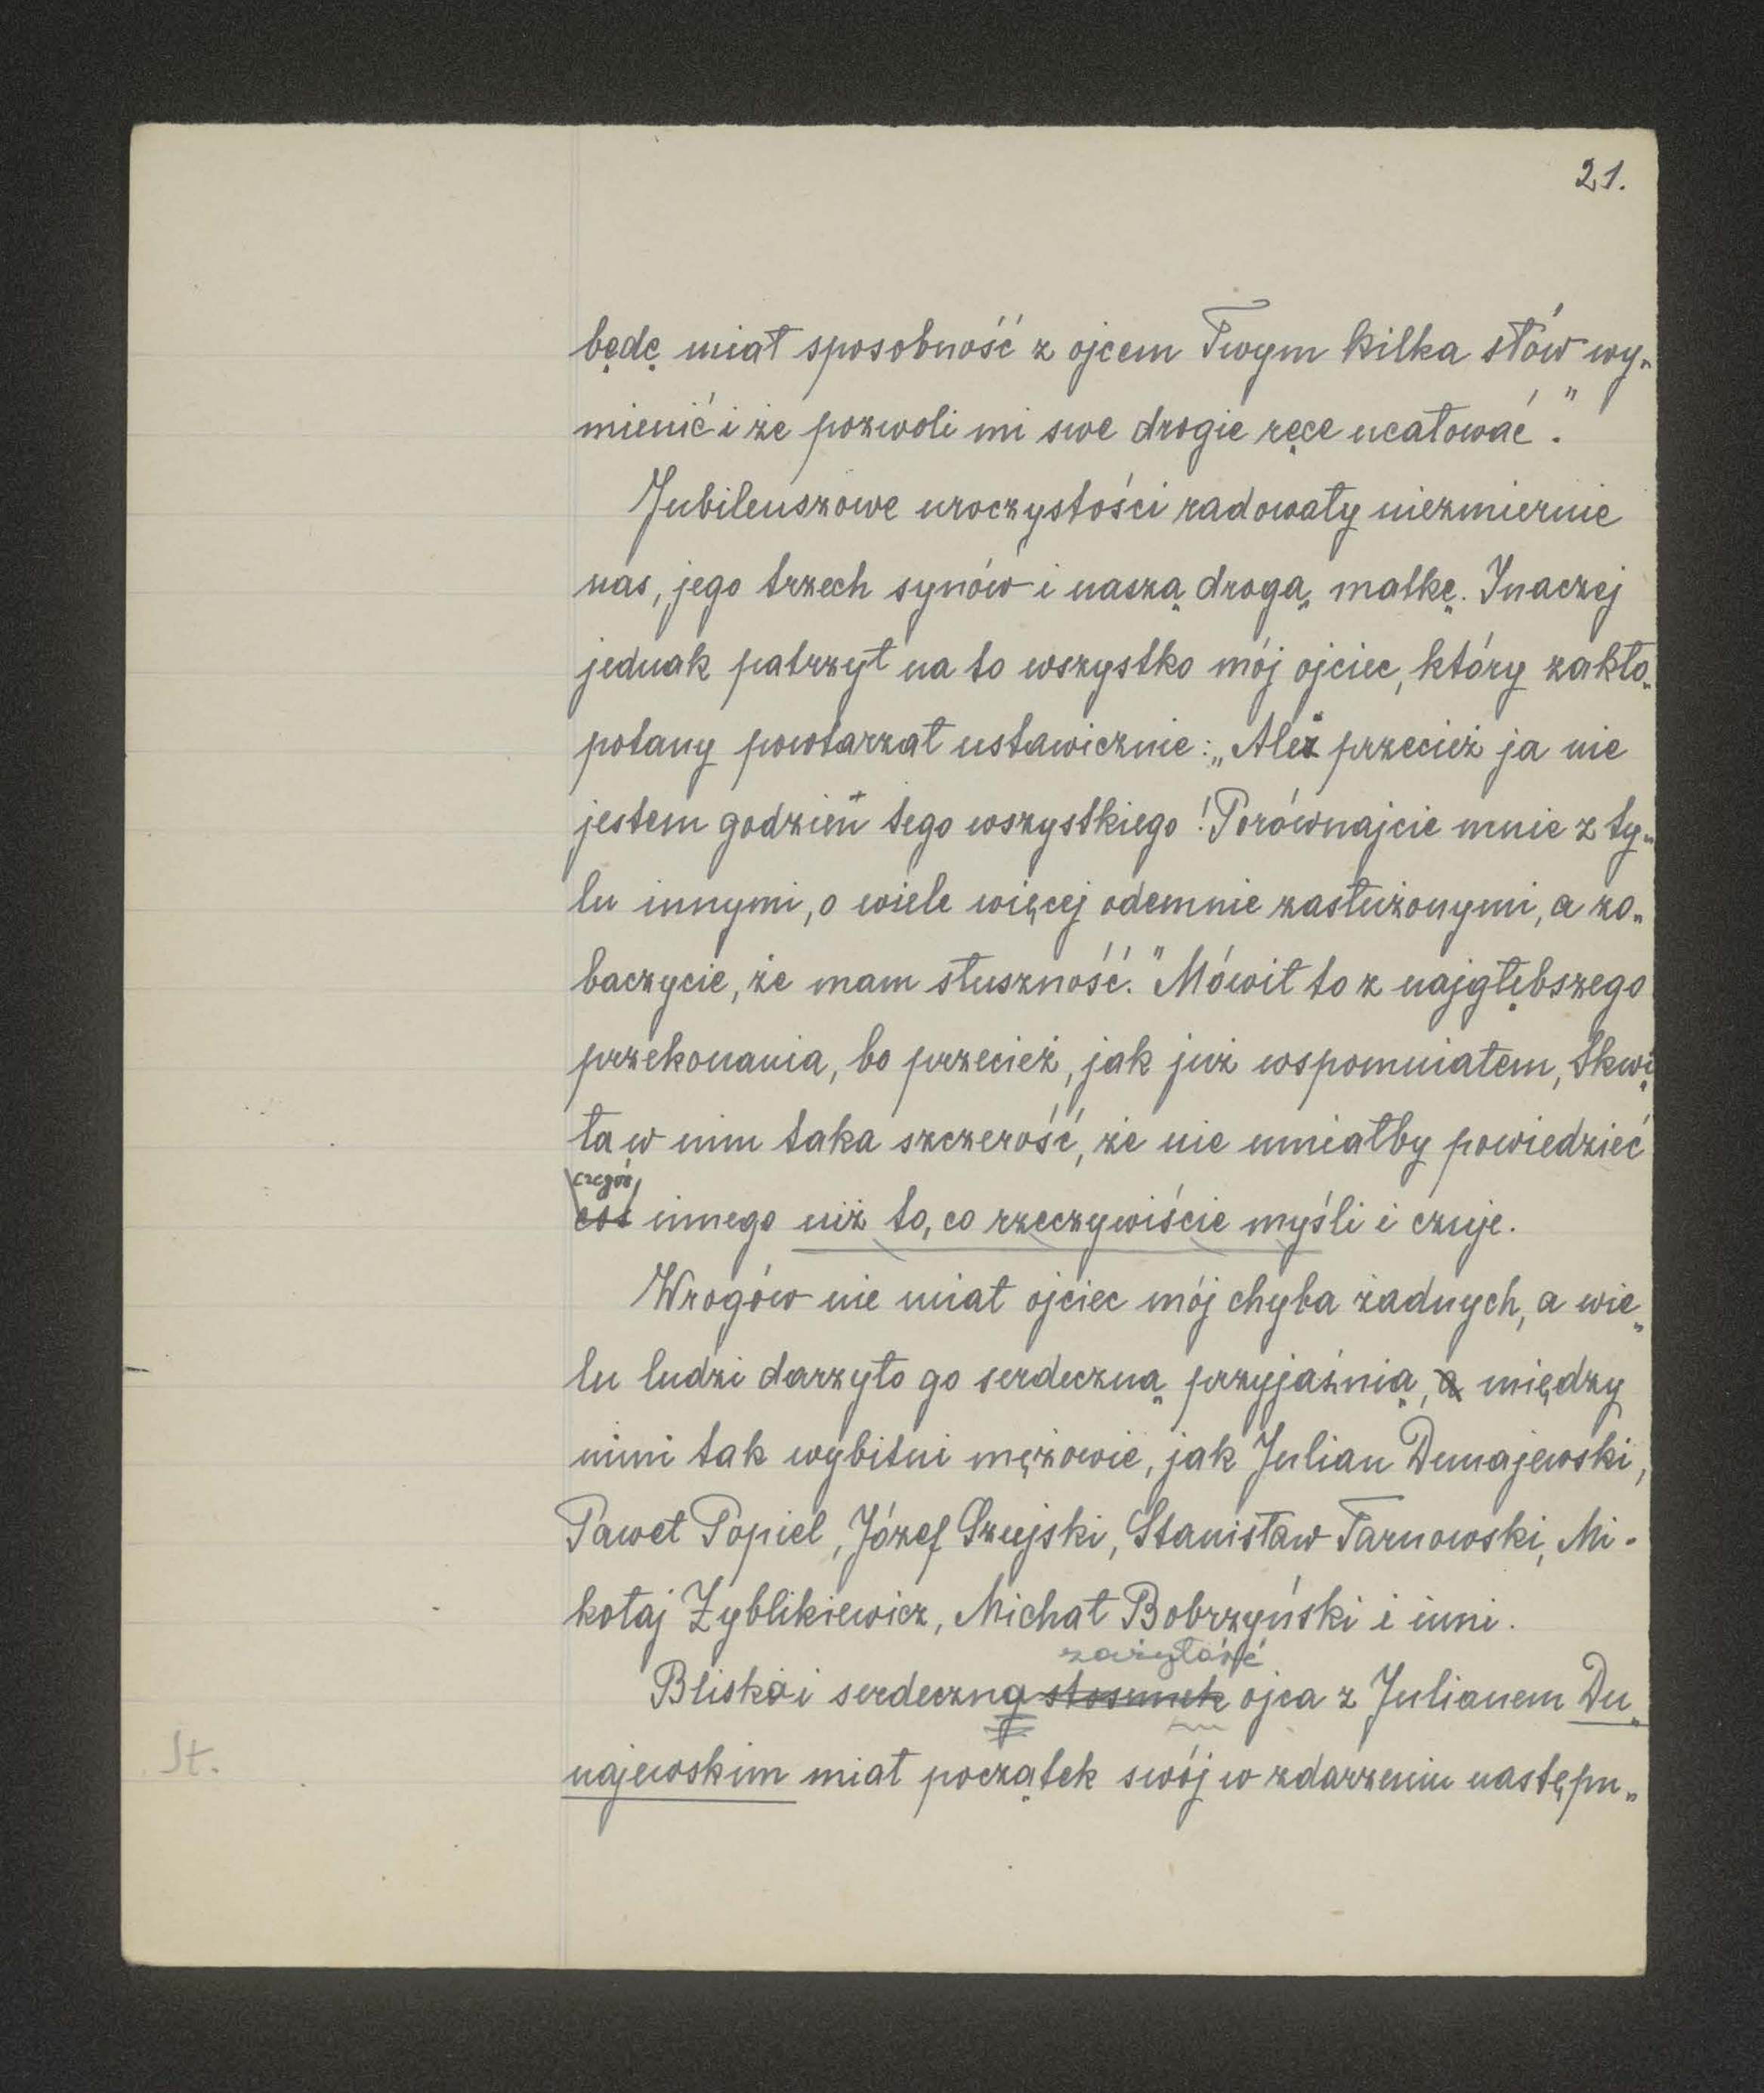 21.
będę miał sposobność z ojcem Twym kilka słów wy„
mienić i że pozwoli mi swe drogie ręce ucałować."
Jubileuszowe uroczystości radowały niezmiernie
nas, jego trzech synów i naszą drogą matkę. Inaczej
jednak patrzył na to wszystko mój ojciec, który zakło„
potany powtarzał ustawicznie: „Ależ przecież ja nie
jestem godzien tego wszystkiego! Porównajcie mnie z ty„
lu innymi, o wiele więcej odemnie zasłużonymi, a zo„
baczycie, że mam słuszność." Mówił to z najgłębszego
przekonania, bo przecież, jak już wspomniałem, tkwi„
ła w nim taka szczerość, że nie umiałby powiedzieć
czegoś
coś innego niż to, co rzeczywiście myśli i czuje.
Wrogów nie miał ojciec mój chyba żadnych, a wie„
lu ludzi darzyło go serdeczną przyjaźnią, a między
nimi tak wybitni mężowie, jak Julian Dunajewski,
Paweł Popiel, Józef Szujski, Stanisław Tarnowski, Mi-
kołaj Zyblikiewicz, Michał Bobrzyński i inni.
zażyłość
Bliska i serdeczna stosunek ojca z Julianem Du„
St.
najewskim miał początek swój w zdarzeniu następu„